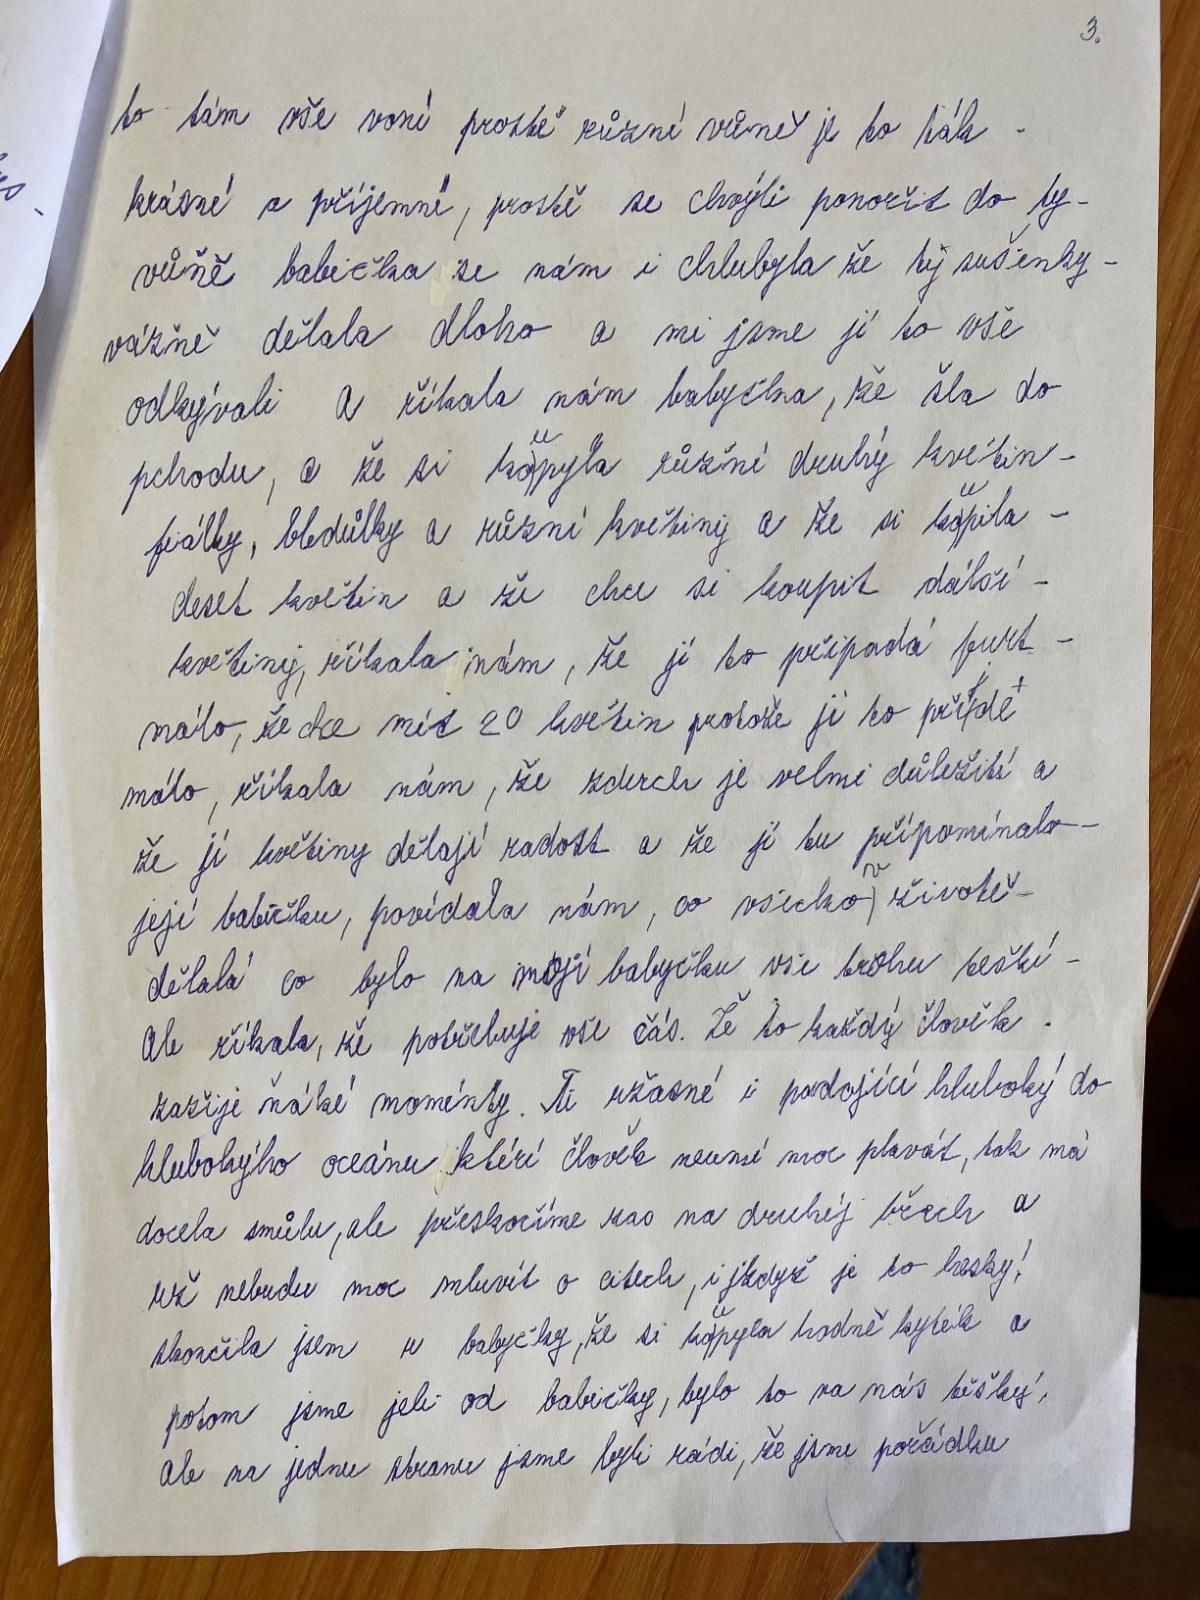 3.
to tám vše voní prostě různé vůně je to ták -
krásné a příjemné, prostě se chvýli ponořit do ty -
vůňě babička se nám i chlubyla že tý sušenky -
vážně dělala dloho a mi jsme jí to vše
odkývali a říkala nám babyčka, že šla do
pchodu, a že si koupyla růžné druhý květin -
fiálky, bledúlky a různí květiny a že si koupila -
deset květin a že chce si koupit dálší -
květiny, říkala nám, že jí to připadá furt -
málo, že chce mít 20 květin protože jí to přídé
málo, říkala nám, že zderch je velmi důležití a
že jí květiny dělají radost a že jí tu připomínalo -
její babičku, povídala nám, co všecko v životě -
dělalá co bylo na mojí babyčku vše trohu teški -
Ale říkala, že potřebuje vše čás. Že to každý člověk .
zažije ňáké moménty. Ti užasné i padající hluboký do
hlubokýho oceánu ktérí člověk neumí moc plavát, tak má
docela smůlu, ale přeskočíme zas na druhéj břech a
už nebudu moc mluvít o citech, i jkdyž je to hesky!
skončila jsem u babyčky, že si koupyla hodně kyték a
potom jsme jeli od babičky, bylo to na nás těšký,
Ale na jednu stranu jsme byli rádi, že jsme pořádku